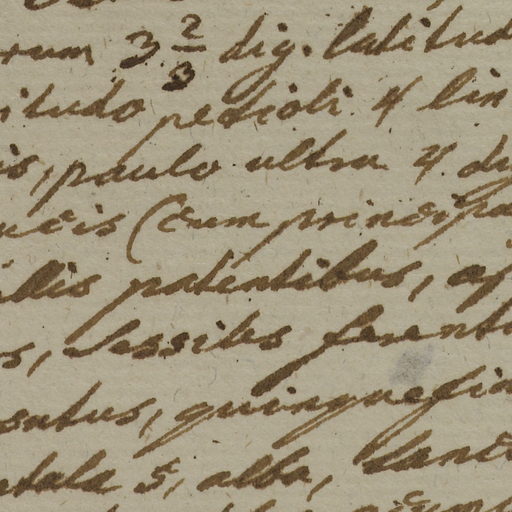 rum 3 2/3 dig. latitud
itudo petioli 4 lin
is, paulo ultra 4 di
ucis (cum principa
illis patentibus, 
s, sessiles ferent
entus, quinquefid
etala 5, alba, lanc